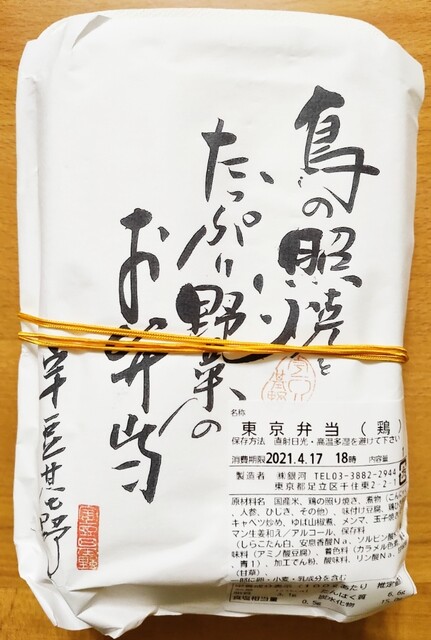 鳥の照焼と
たっぷり野菜の
お弁当
名称
東京弁当（鶏）
保存方法 直射日光・高温多湿を避けて下さい
消費期限 2021.4.17 18時 内容量
製造者 ㈱銀河 TEL03-3882-2944
東京都足立区千住東2-2-1
原材料名 国産米、鶏の照り焼き、煮物
、人参、ひじき、その他）、味付け豆腐、
キャベツ炒め、ゆば山椒煮、メンマ、玉子焼
マン生姜和え／アルコール、保存料
（しらこたん白、安息香酸Na、ソルビン酸
味料（アミノ酸豆腐）、着色料（カラメル色
、青1）、加工でん粉、酸味料、リン酸Na
（甘草）
小麦・乳成分を含む
たんぱく質 6.6g
食塩相当量 0.5g